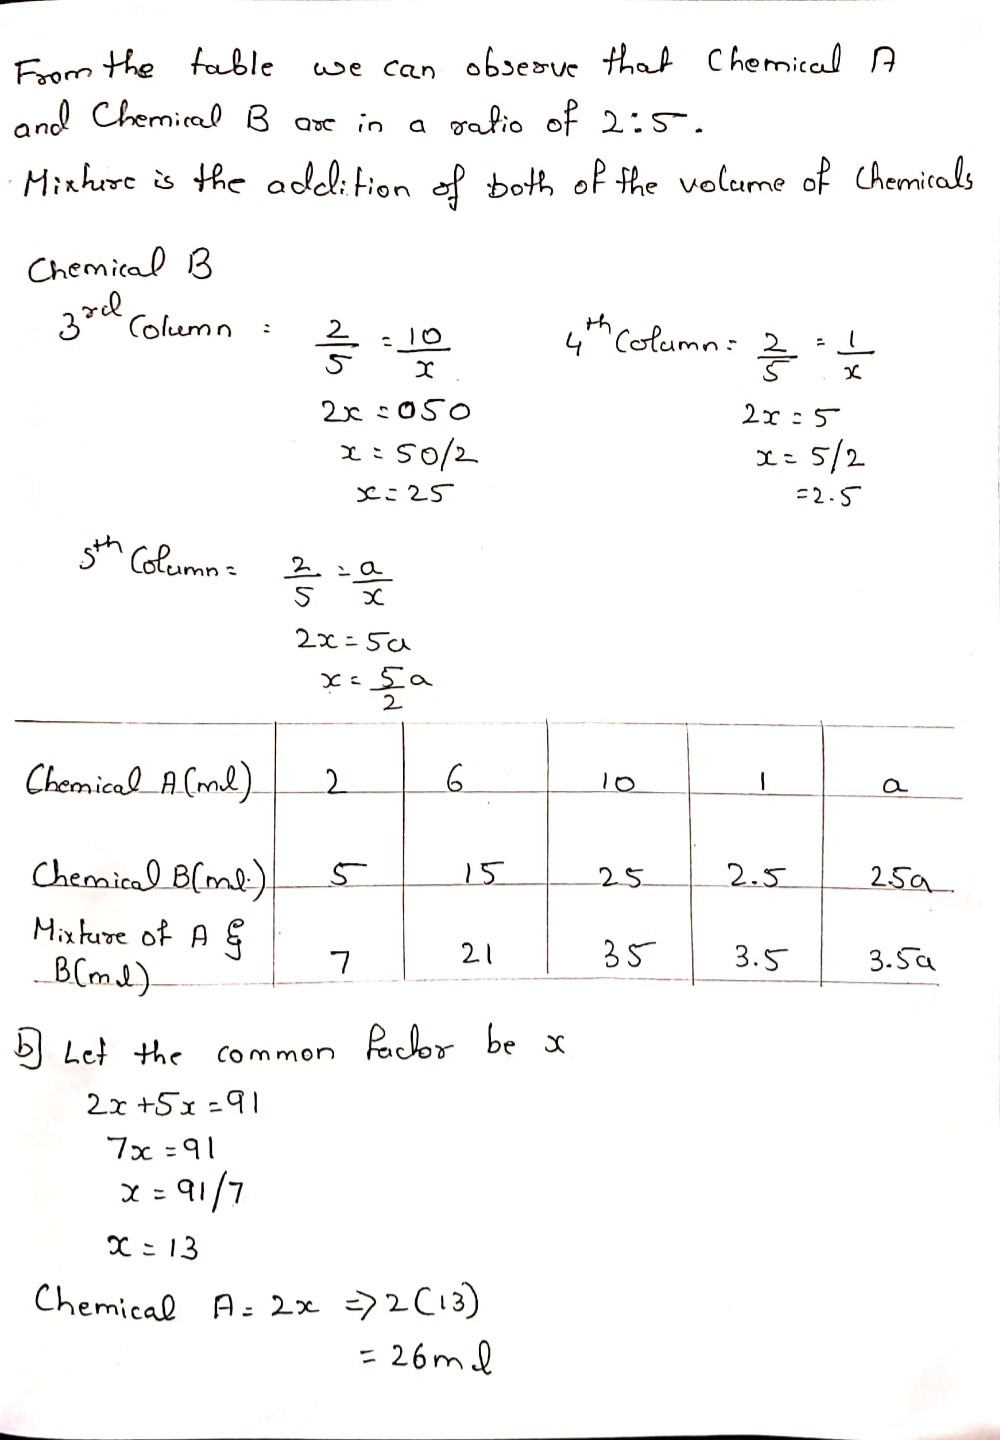 From the table we can observe that Chemical A
and Chemical B are in a ratio of 2:5.
Mixture is the addition of both of the volume of Chemicals
Chemical B
3rd Column : 2/5 = 10/x
2x = 050
x = 50/2
x = 25
4th Column = 2/5 = 1/x
2x = 5
x = 5/2
= 2.5
5th Column = 2/5 = a/x
2x = 5a
x = 5/2 a
Chemical A(ml) 2 6 10 1 a
Chemical B(ml) 5 15 25 2.5 2.5a
Mixture of A &
B(ml) 7 21 35 3.5 3.5a
b] Let the common factor be x
2x + 5x = 91
7x = 91
x = 91/7
x = 13
Chemical A = 2x ⇒ 2(13)
= 26ml